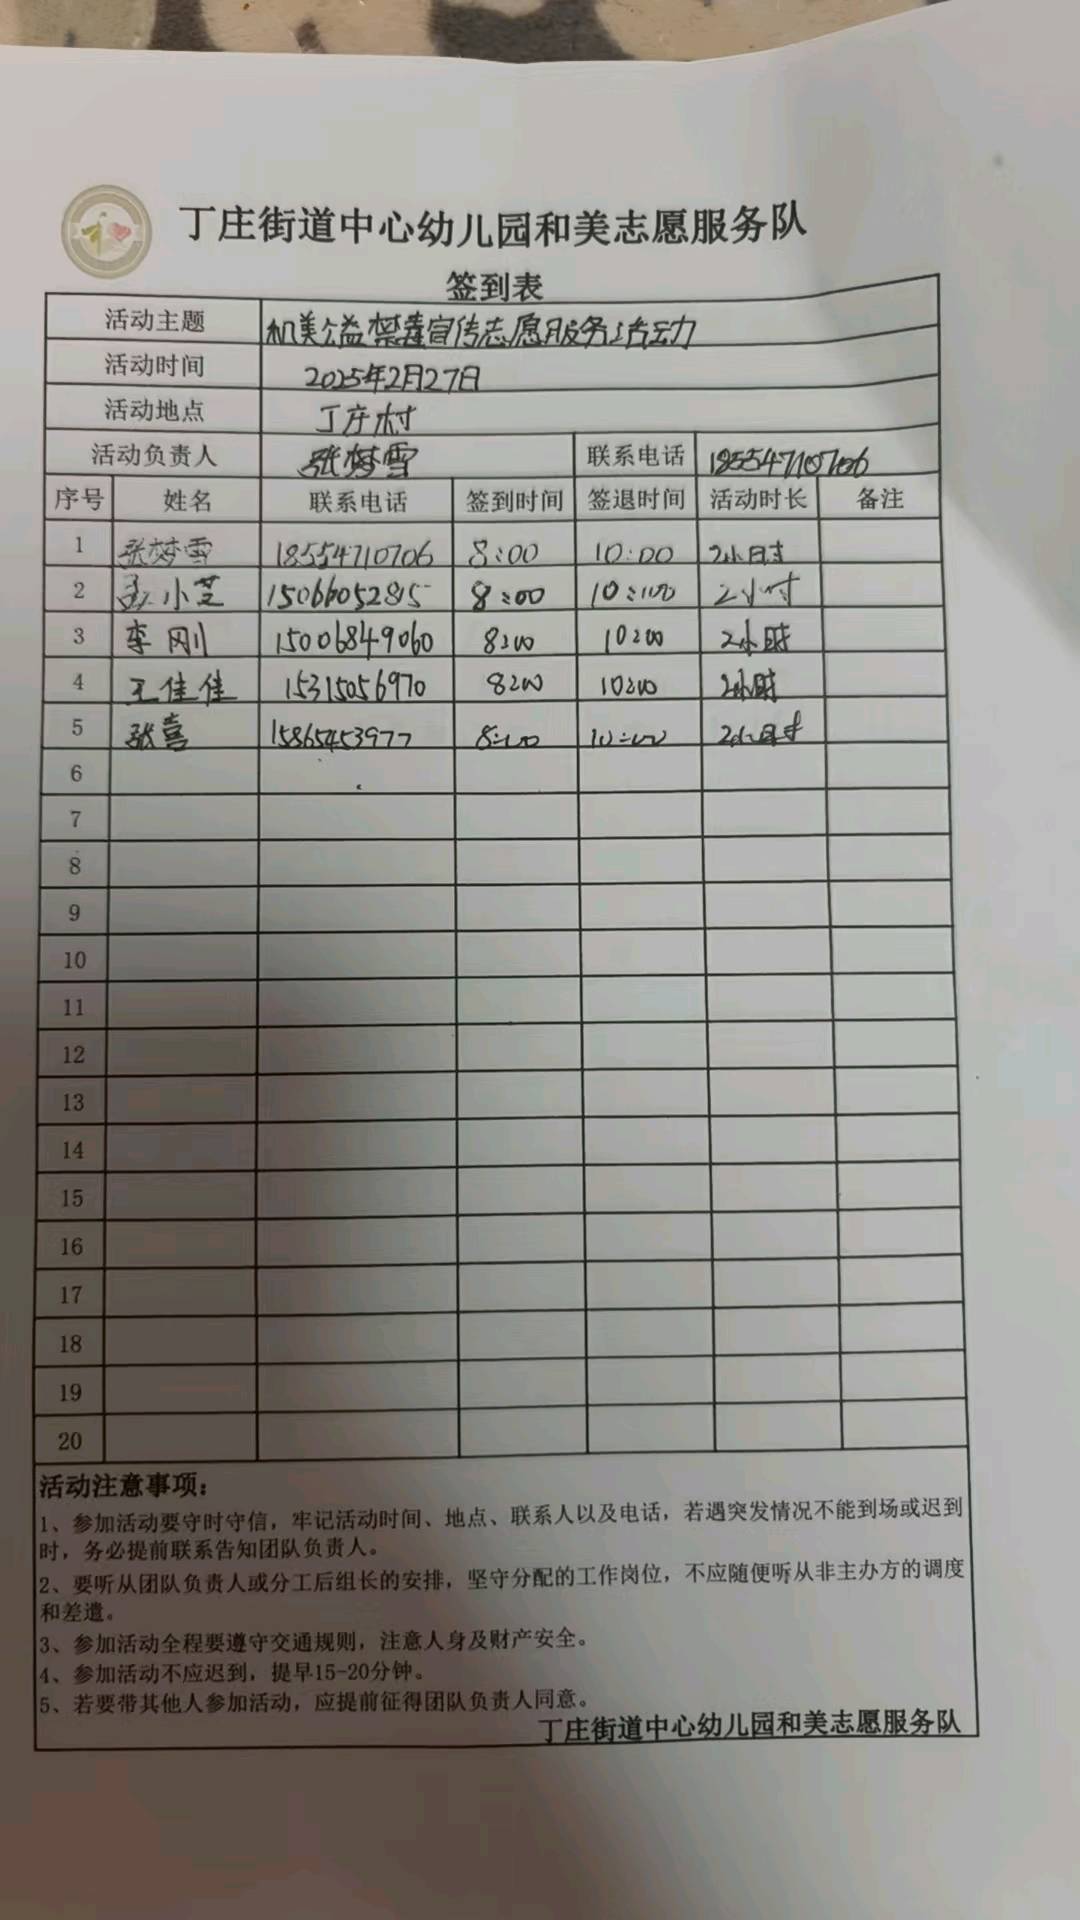 丁庄街道中心幼儿园和美志愿服务队
签到表
活动主题 和美公益禁毒宣传志愿服务活动
活动时间 2025年2月27日
活动地点 丁庄村
活动负责人 张梦雪 联系电话 18554710706
序号 姓名 联系电话 签到时间 签退时间 活动时长 备注
1 张梦雪 18554710706 8:00 10:00 2小时
2 孟小芝 15066052815 8:00 10:00 2小时
3 李刚 15006849060 8:00 10:00 2小时
4 王佳佳 15315056970 8:00 10:00 2小时
5 张喜 15865453977 8:00 10:00 2小时
6
7
8
9
10
11
12
13
14
15
16
17
18
19
20
活动注意事项:
1、参加活动要守时守信，牢记活动时间、地点、联系人以及电话，若遇突发情况不能到场或迟到
时，务必提前联系告知团队负责人。
2、要听从团队负责人或分工后组长的安排，坚守分配的工作岗位，不应随便听从非主办方的调度
和差遣。
3、参加活动全程要遵守交通规则，注意人身及财产安全。
4、参加活动不应迟到，提早15-20分钟。
5、若要带其他人参加活动，应提前征得团队负责人同意。
丁庄街道中心幼儿园和美志愿服务队